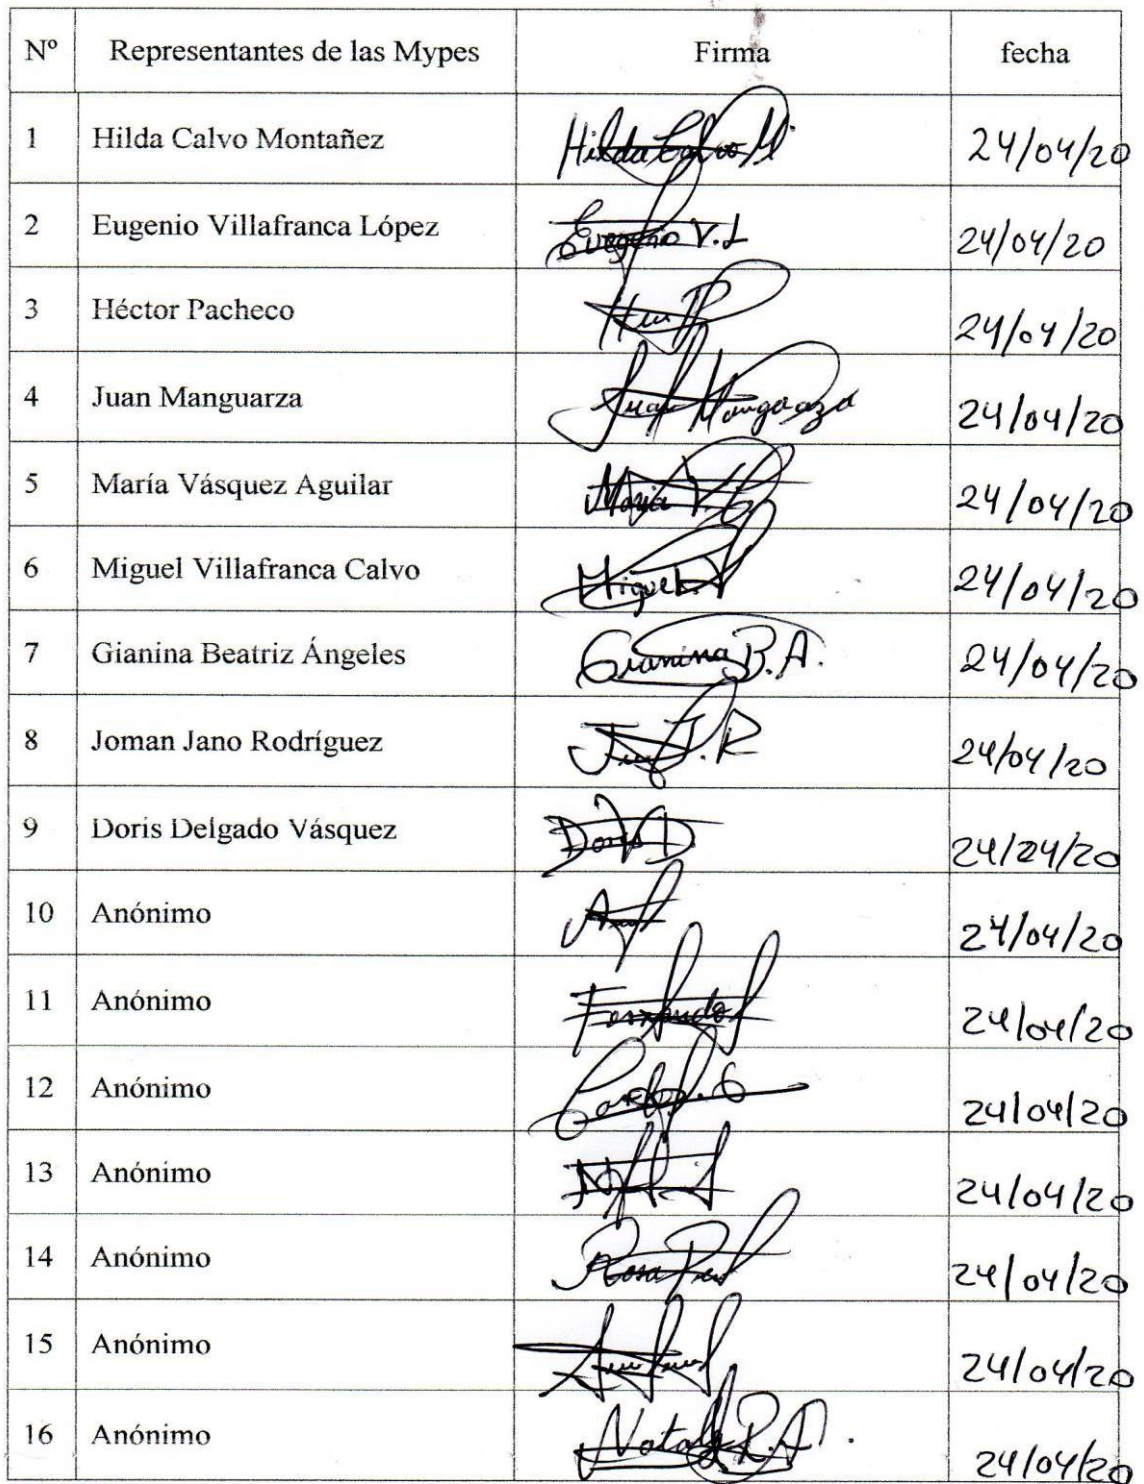 Nº Representantes de las Mypes Firma fecha
1 Hilda Calvo Montañez Hilda Calvo M 24/04/20
2 Eugenio Villafranca López Eugenio V.L 24/04/20
3 Héctor Pacheco 24/04/20
4 Juan Manguarza Juan 24/04/20
5 María Vásquez Aguilar Maria V. 24/04/20
6 Miguel Villafranca Calvo Miguel V 24/04/20
7 Gianina Beatriz Ángeles Gianina B.A. 24/04/20
8 Joman Jano Rodríguez J.R 24/04/20
9 Doris Delgado Vásquez Doris D. 24/24/20
10 Anónimo 24/04/20
11 Anónimo Fernando 24/04/20
12 Anónimo 24/04/20
13 Anónimo 24/04/20
14 Anónimo Rosa 24/04/20
15 Anónimo 24/04/20
16 Anónimo R.A. 24/04/20